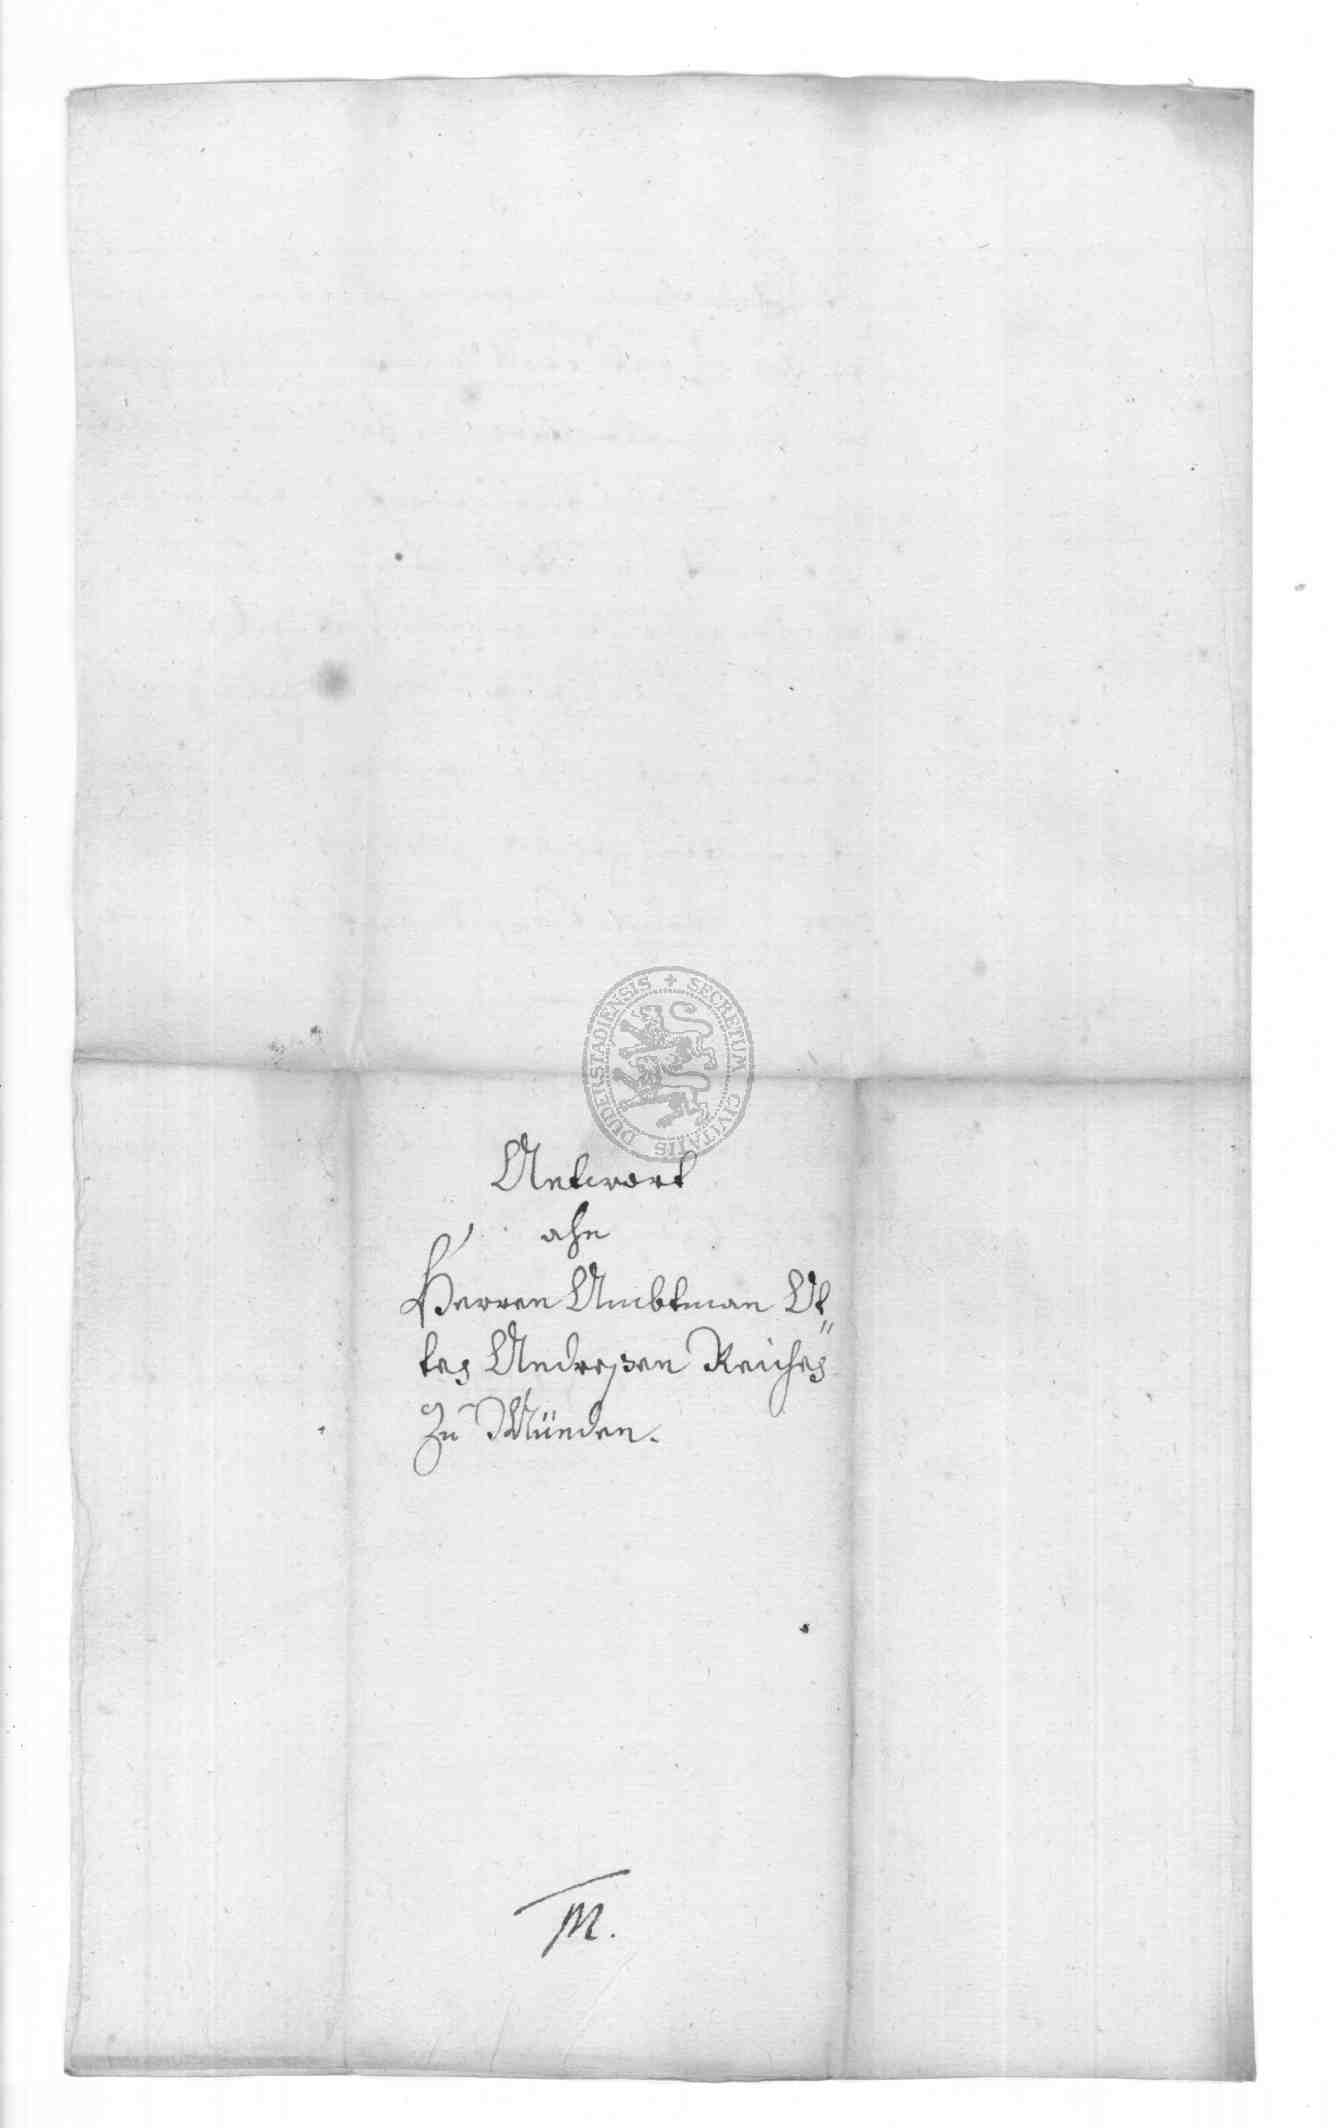 SECRETUM CIVITATIS DUDERSTADIENSIS
Antwort
ahn
Herren Ambtman
Andreßen
Zu Münden.
M.